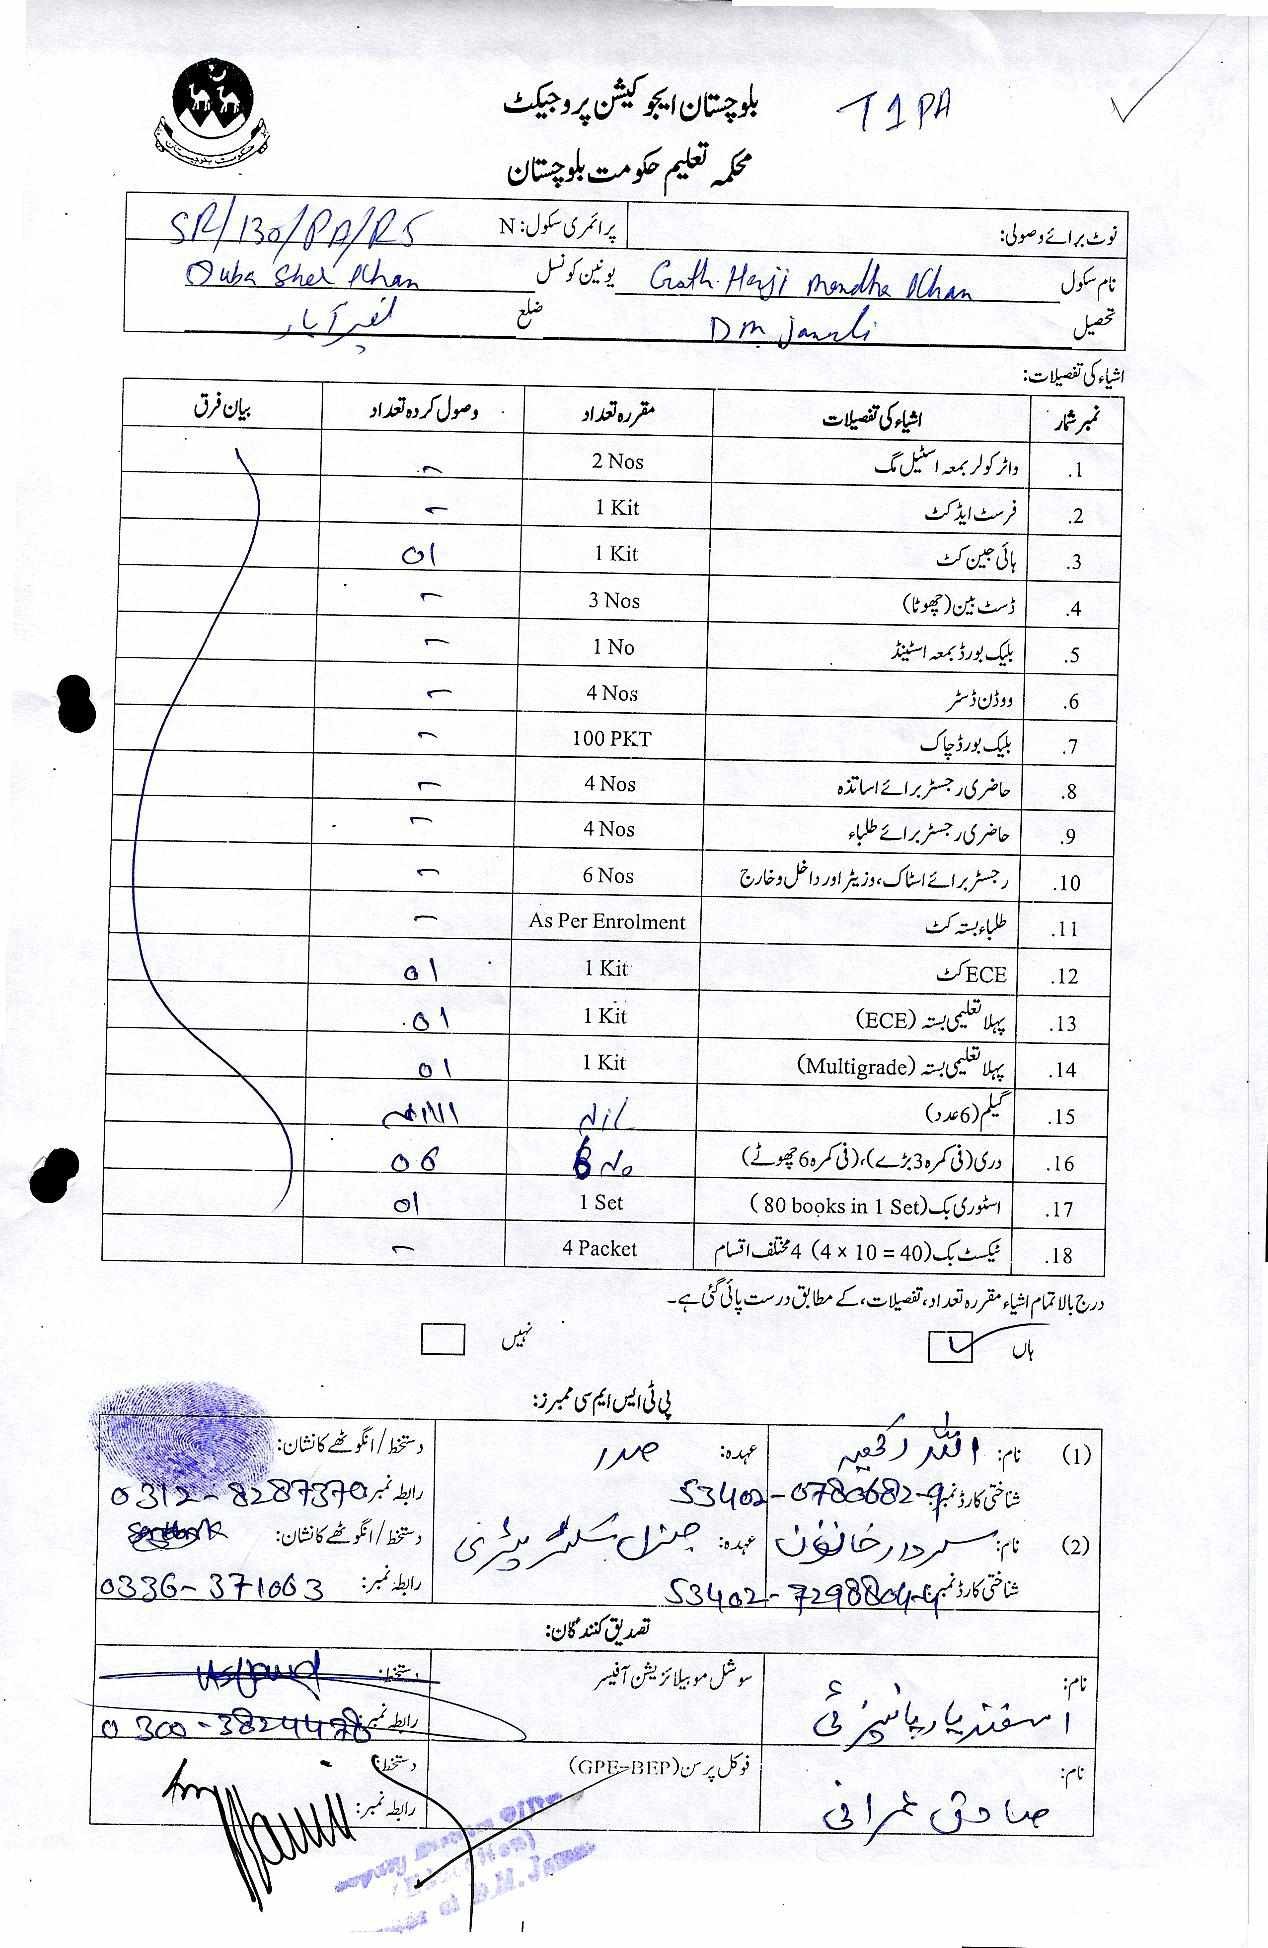 بلوچستان ایجوکیشن پروجیکٹ
T1PA
محکمہ تعلیم حکومت بلوچستان
نوٹ برائے وصولی:
پرائمری سکول: N SR/130/PA/RS
نام سکول Goth Haji Mendha Khan یونین کونسل Quba Sher Khan
تحصیل D M Jamali ضلع نصیر آباد
اشیاء کی تفصیلات:
نمبر شمار اشیاء کی تفصیلات مقررہ تعداد وصول کردہ تعداد بیان فرق
1. واٹر کولر بمعہ اسٹیل مگ 2 Nos -
2. فرسٹ ایڈ کٹ 1 Kit -
3. ہائی جین کٹ 1 Kit 01
4. ڈسٹ بین (چھوٹا) 3 Nos -
5. بلیک بورڈ بمعہ اسٹینڈ 1 No -
6. ووڈن ڈسٹر 4 Nos -
7. بلیک بورڈ چاک 100 PKT -
8. حاضری رجسٹر برائے اساتذہ 4 Nos -
9. حاضری رجسٹر برائے طلباء 4 Nos -
10. رجسٹر برائے اسٹاک، وزیٹر اور داخل و خارج 6 Nos -
11. طلباء بستہ کٹ As Per Enrolment -
12. ECE کٹ 1 Kit 01
13. پہلا تعلیمی بستہ (ECE) 1 Kit 01
14. پہلا تعلیمی بستہ (Multigrade) 1 Kit 01
15. گیلم (6 عدد) Nil
16. دری (فی کمرہ 3 بڑے)، (فی کمرہ 6 چھوٹے) 6 No 06
17. اسٹوری بک (80 books in 1 Set) 1 Set 01
18. ٹیکسٹ بک (4 × 10 = 40) 4 مختلف اقسام 4 Packet -
درج بالا تمام اشیاء مقررہ تعداد، تفصیلات، کے مطابق درست پائی گئی ہے۔
ہاں نہیں
پی ٹی ایس ایم سی ممبرز:
(1) نام: اللہ رکھیہ عہدہ: صدر دستخط / انگوٹھے کا نشان:
شناختی کارڈ نمبر: 53402-0780682-9 رابطہ نمبر: 0312-8287370
(2) نام: سردار خاتون عہدہ: جنرل سیکٹریٹری دستخط / انگوٹھے کا نشان:
شناختی کارڈ نمبر: 53402-7298804-4 رابطہ نمبر: 0336-371063
تصدیق کنندگان:
نام: اسفند یار پانیزئی سوشل موبیلائزیشن آفیسر دستخط:
رابطہ نمبر: 0300-3824478
نام: صادق عمرانی فوکل پرسن (GPE-BEP) دستخط:
رابطہ نمبر: